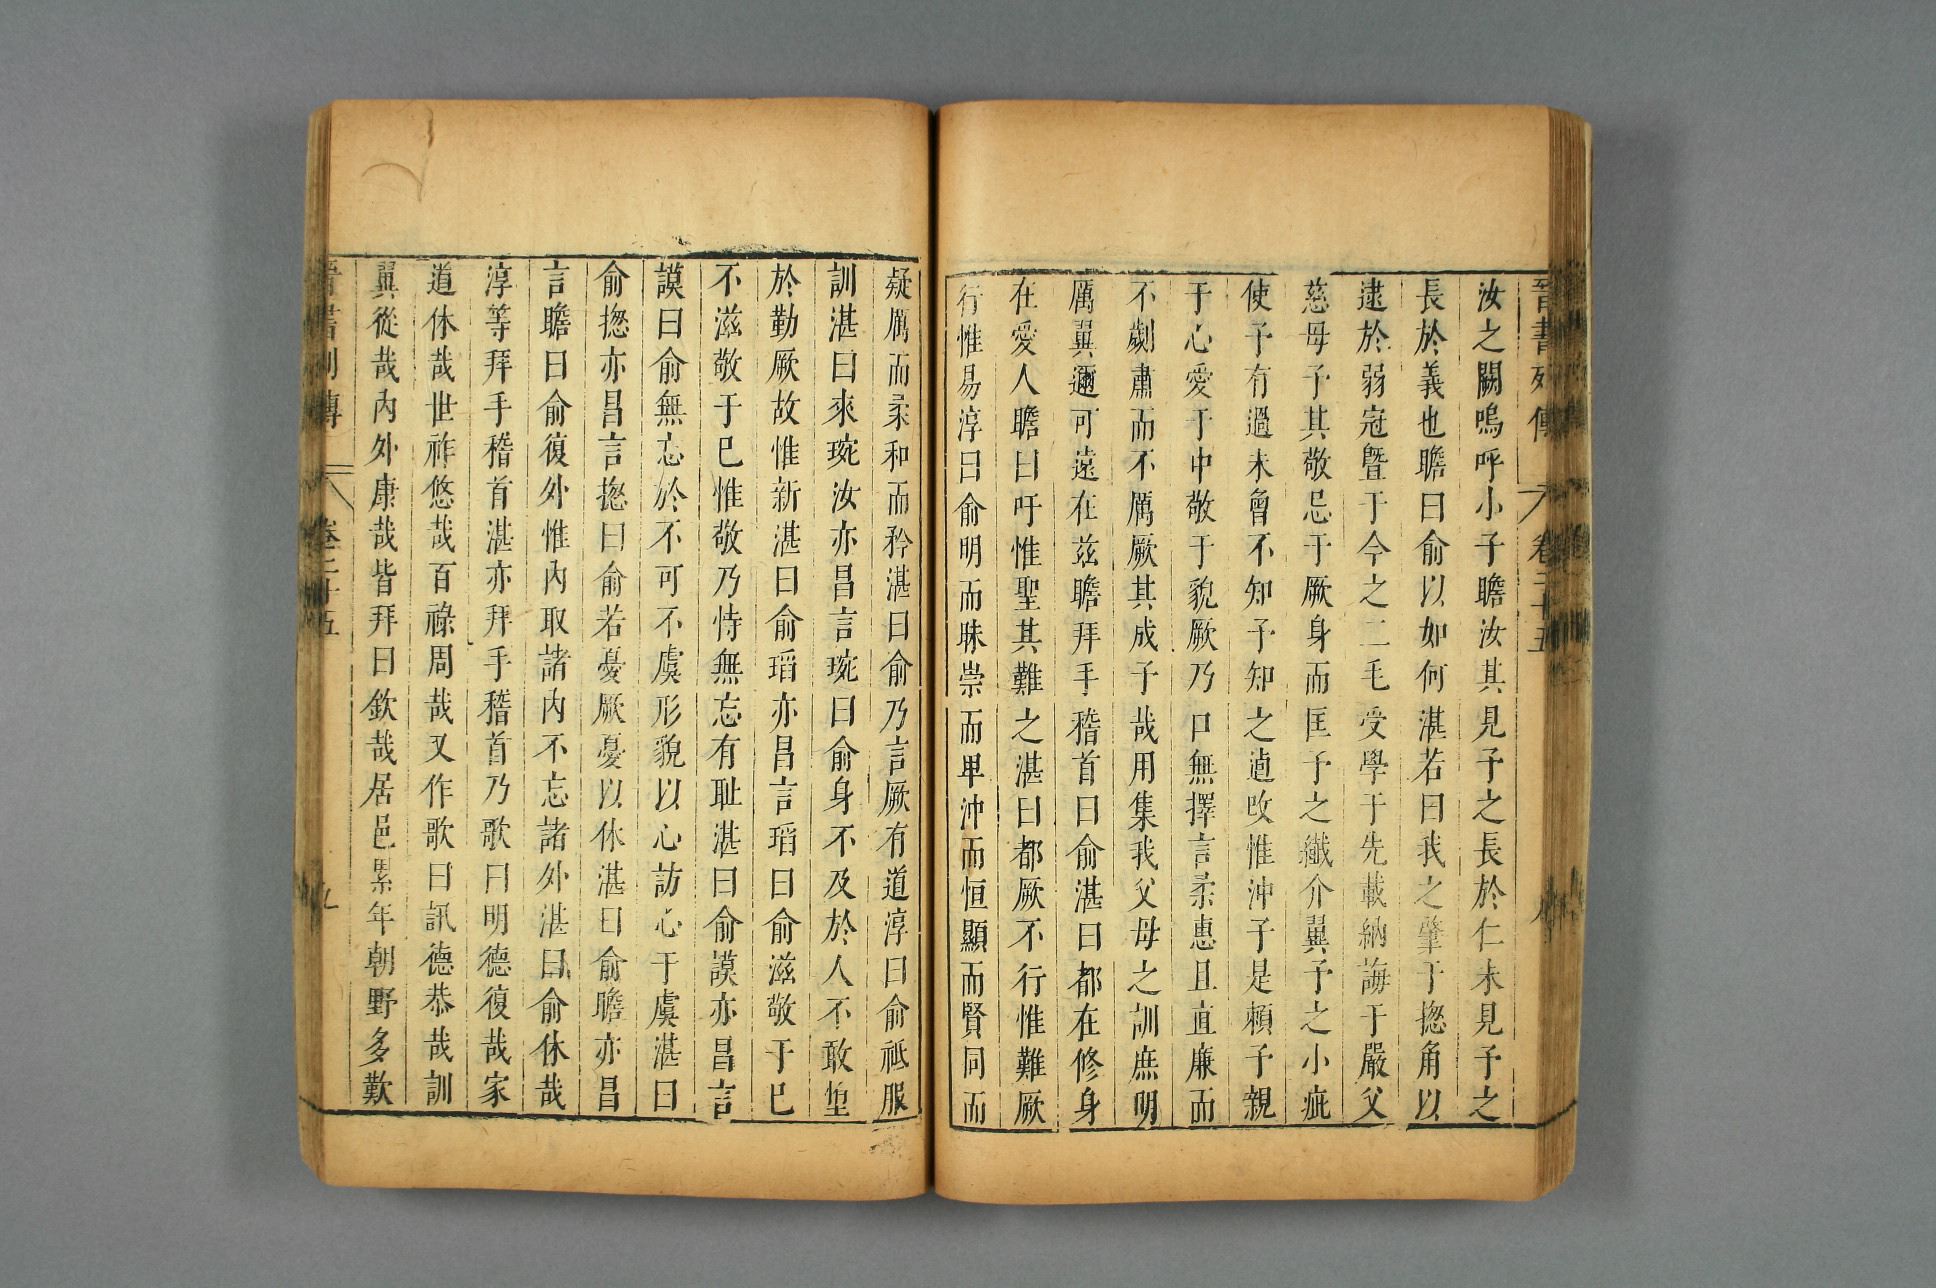 晉書列傳 卷二十五
汝之闕嗚呼小子瞻汝其見予之長於仁未見予之
長於義也瞻曰俞以如何湛若曰我之肇于揔角以
逮於弱冠曁于今之二毛受學于先載納誨于嚴父
慈母予其敬忌于厥身而匡予之纖介翼予之小疵
使予有過未曾不知予知之逌改惟沖子是賴予親
于心愛于中敬于貌厥乃口無擇言柔惠且直廉而
不劌肅而不厲厥其成予哉用集我父母之訓庶明
厲翼邇可遠在茲瞻拜手稽首曰俞湛曰都在修身
在愛人瞻曰吁惟聖其難之湛曰都厥不行惟難厥
行惟易淳曰俞明而昧崇而卑沖而恒顯而賢同而
疑厲而柔和而矜湛曰俞乃言厥有道淳曰俞祗服
訓湛曰來琬汝亦昌言琬曰俞身不及於人不敢墮
於勤厥故惟新湛曰俞瑫亦昌言瑫曰俞滋敬于己
不滋敬于己惟敬乃恃無忘有耻湛曰俞謨亦昌言
謨曰俞無忘於不可不虞形貌以心訪心于虞湛曰
俞揔亦昌言揔曰俞若憂厥憂以休湛曰俞瞻亦昌
言瞻曰俞復外惟內取諸內不忘諸外湛曰俞休哉
淳等拜手稽首湛亦拜手稽首乃歌曰明德復哉家
道休哉世祚悠哉百祿周哉又作歌曰訊德恭哉訓
翼從哉內外康哉皆拜曰欽哉居邑累年朝野多歎
晉書列傳 卷二十五 九